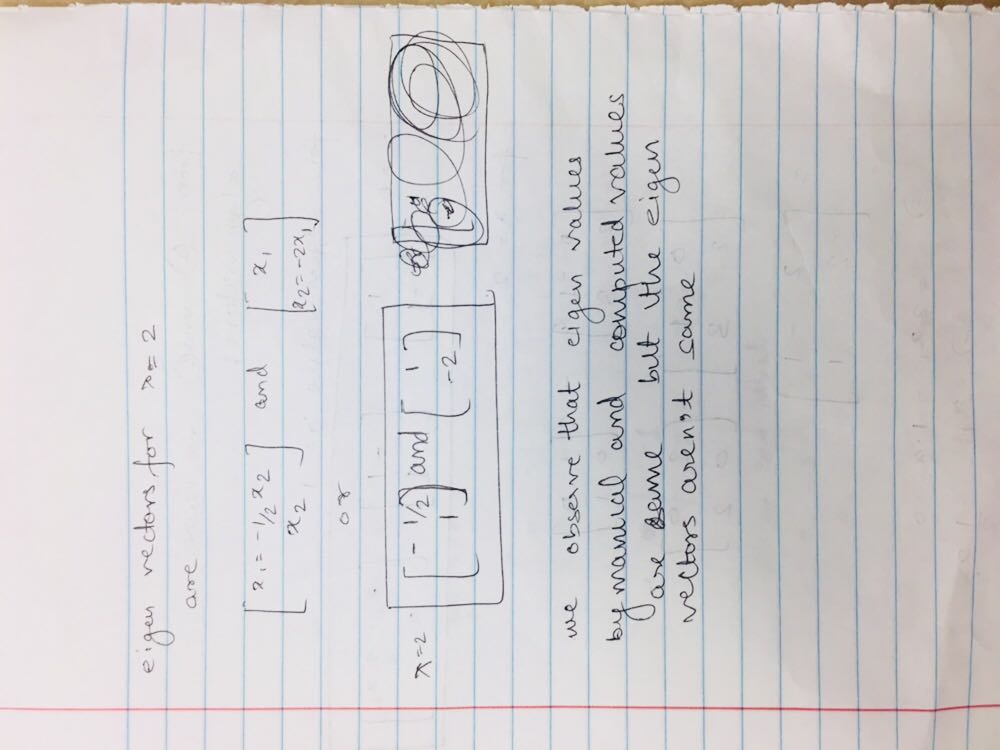 eigen vectors for x = 2
are
[x₁ = -1/2 x₂
x₂] and [x₁
x₂ = -2x₁]
or
x = 2 [-1/2
1] and [1
-2]
we observe that eigen values
by manual and computed values
are same but the eigen
vectors aren't same